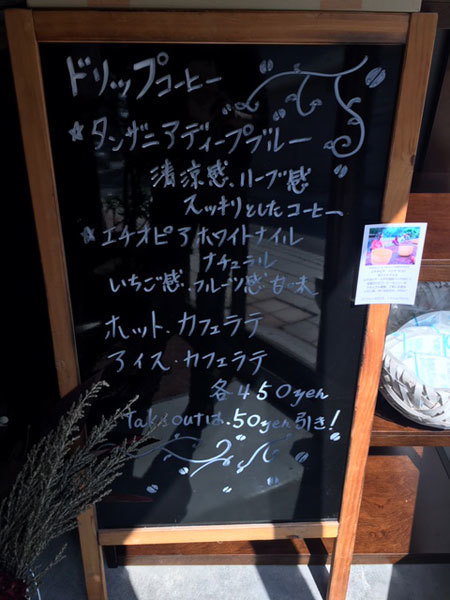 ドリップコーヒー
☆タンザニアディープブルー
清涼感、ハーブ感
スッキリとしたコーヒー
☆エチオピアホワイトナイル
ナチュラル
いちご感、フルーツ感 甘味
ホット・カフェラテ
アイス・カフェラテ
各450yen
Takeoutは、50yen引き!